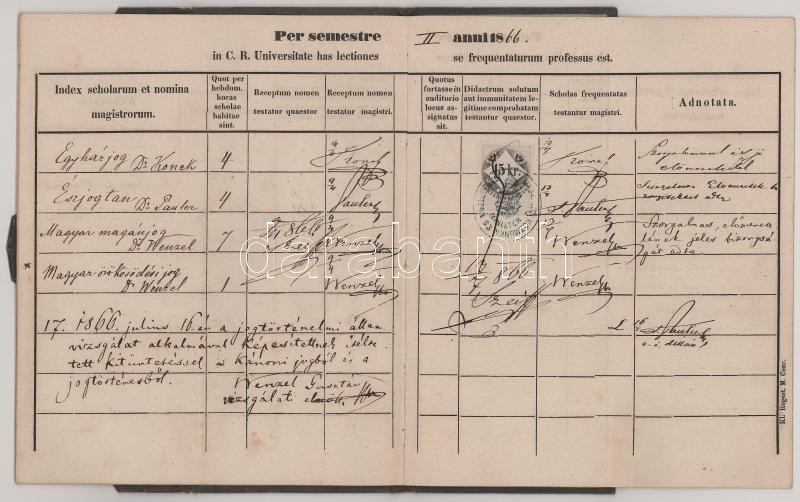 Per semestre II anni 1866.
in C. R. Universitate has lectiones se frequentaturum professus est.
Index scholarum et nomina magistrorum.
Quot per hebdom. horas scholae habitae sint.
Receptum nomen testatur quaestor
Receptum nomen testatur magistri.
Quotus fortasse in auditorio locus assignatus sit.
Didactrum solutum aut immunitatem legitime comprobatam testantur quaestor.
Scholas frequentatas testantur magistri.
Adnotata.
Egyházjog Dr Konek 4
Konek
15 kr.
Konek
Szorgalommal és jó előmenetellel
Észjogtan Dr Pauler 4
Pauler
Pauler
Magyar magánjog Dr. Wenzel 7
866
Wenzel
Wenzel
Szorgalmas,
jeles
gát adta.
Magyar örökösödési jog Dr Wenzel 1
Wenzel
866
Wenzel
17. 1866. julius 16.án a jogtörténelmi állam
vizsgálat alkalmával képesítettnek ítél
tett kitüntetéssel a kánoni jogból és a
jogtörténésből.
Wenzel Gusztáv
vizsgálati elnök.
Kl. Regnst. M. Conc.
darabanth